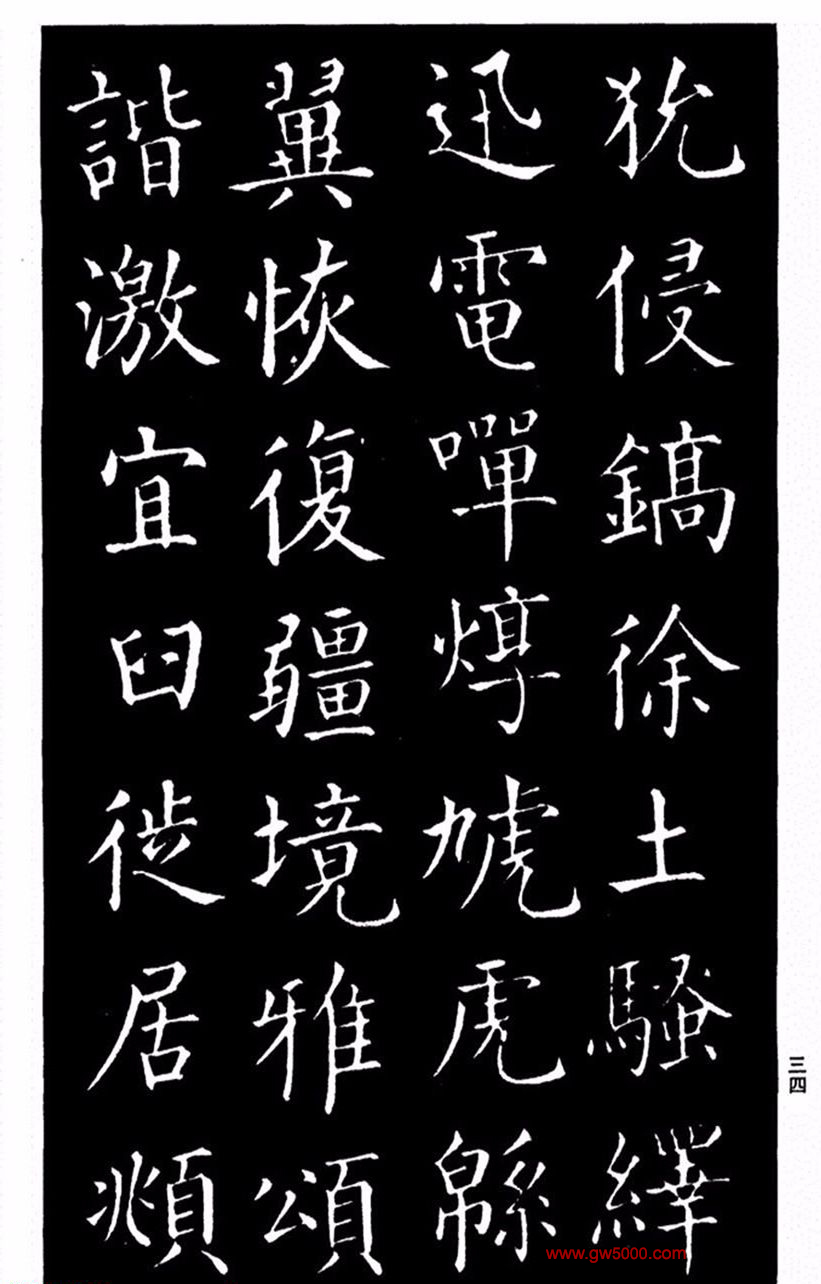 狁侵鎬徐土騷繹
迅電嘽焞虓虎緜
翼恢復疆境雅頌
諧激宜臼徙居頫
三四
www.gw5000.com